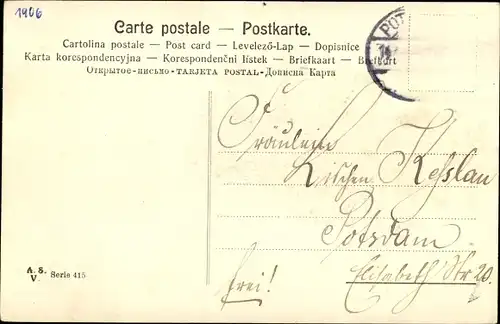 1906
Carte postale — Postkarte.
Cartolina postale — Post card — Levelező-Lap — Dopisnice
Karta korespondencyjna — Korespondenční lístek — Briefkaart — Brefkort
Открытое-письмо-TARJETA POSTAL-Дописна Карта
POT
Fräulein
Lischen Kesslau
Potsdam
frei! Elisabeth Str 20.
A. S.
V. Serie 415